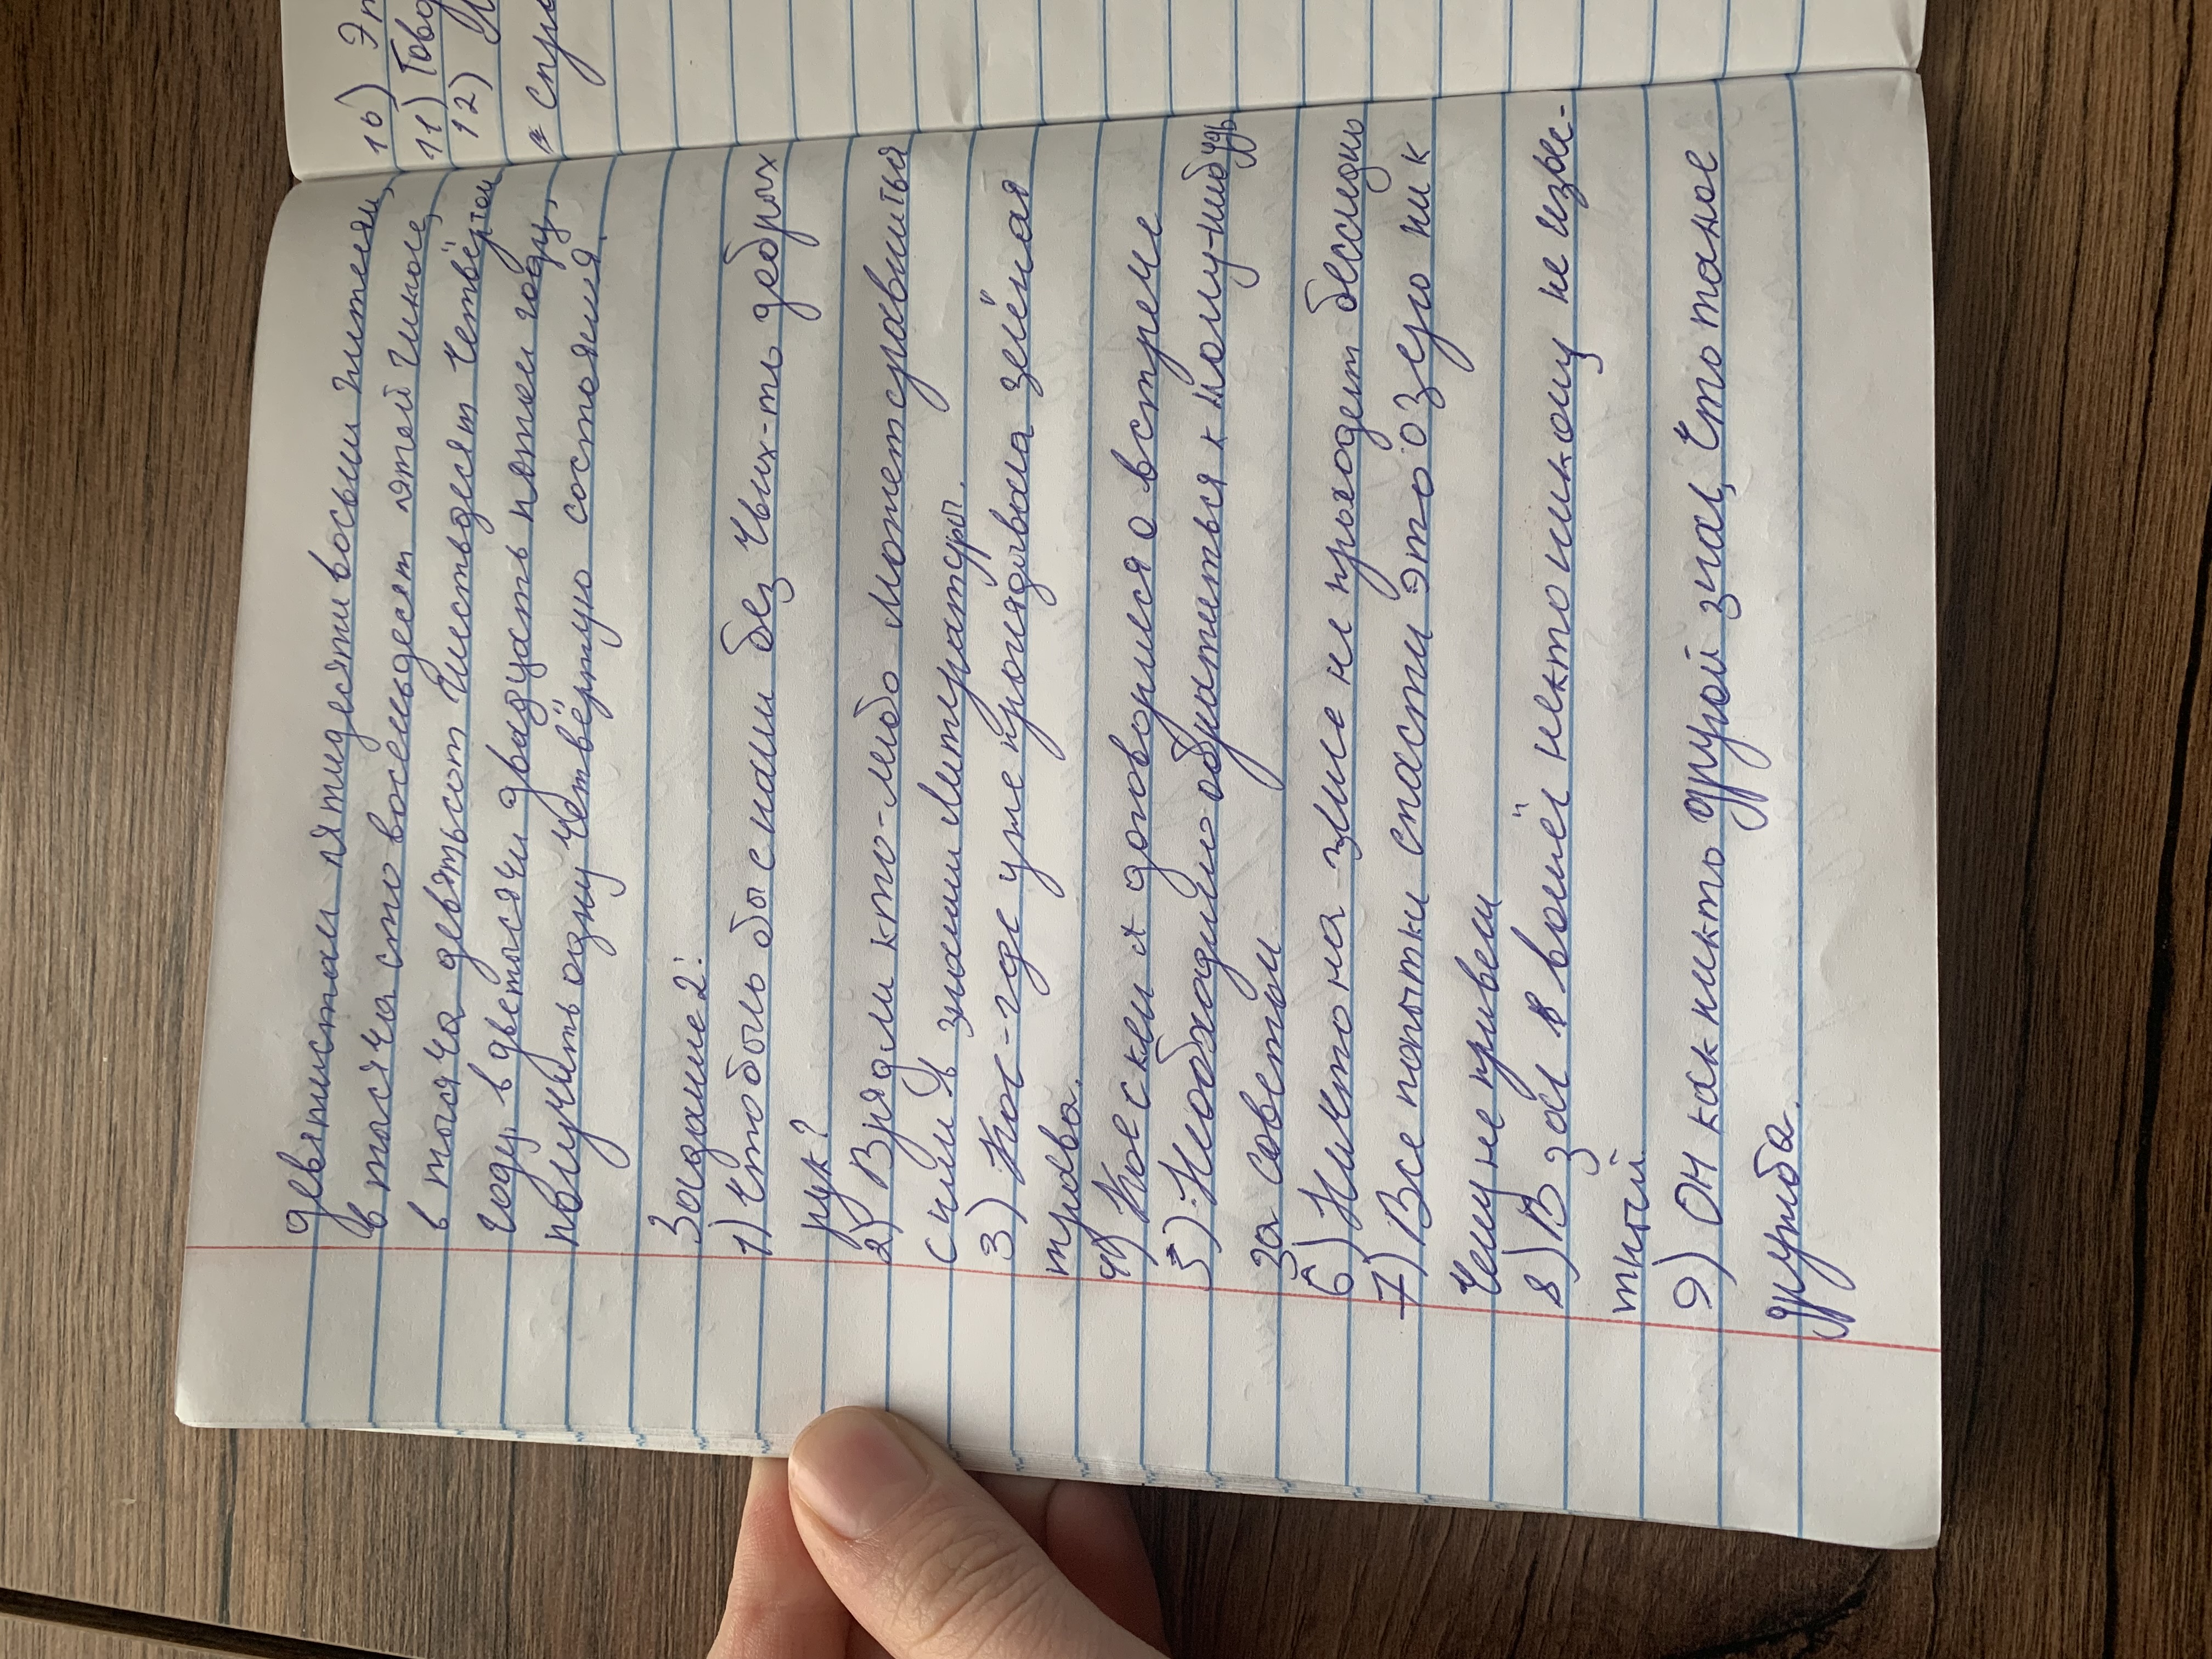 девяистам пятидесяти восьми жителям,
в тысяча сто восемьдесят пятой школе,
в тысяча девятьсот шестьдесят четвёртом
году, в дветысячи двадцать пятом году,
получить одну четвёртую состояния.
Задание 2:
1) Что было бы с нами без чьих-то добрых
рук?
2) Вряд ли кто-либо может сравниться
с ним в знании литературы.
3) Кое-где уже проглядывала зелёная
трава.
4) Кое с кем я договорился о встрече
5) Необходимо обратиться к кому-нибудь
за советом
6) Ничто на земле не проходит бесследно
7) Все попытки спасти это озеро ни к
чему не привели
8) В зал вошёл некто никому не извес-
тный
9) Он как никто другой знал, что такое
дружба.
10) Эт
11) Гово
12)
* Спра